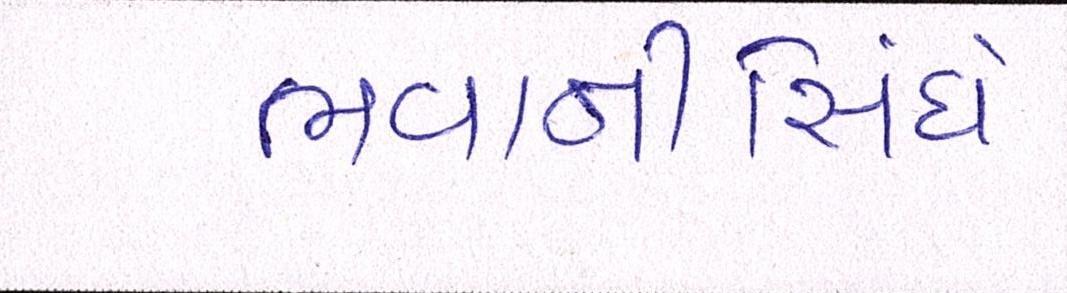 ભવાનીસિંઘે